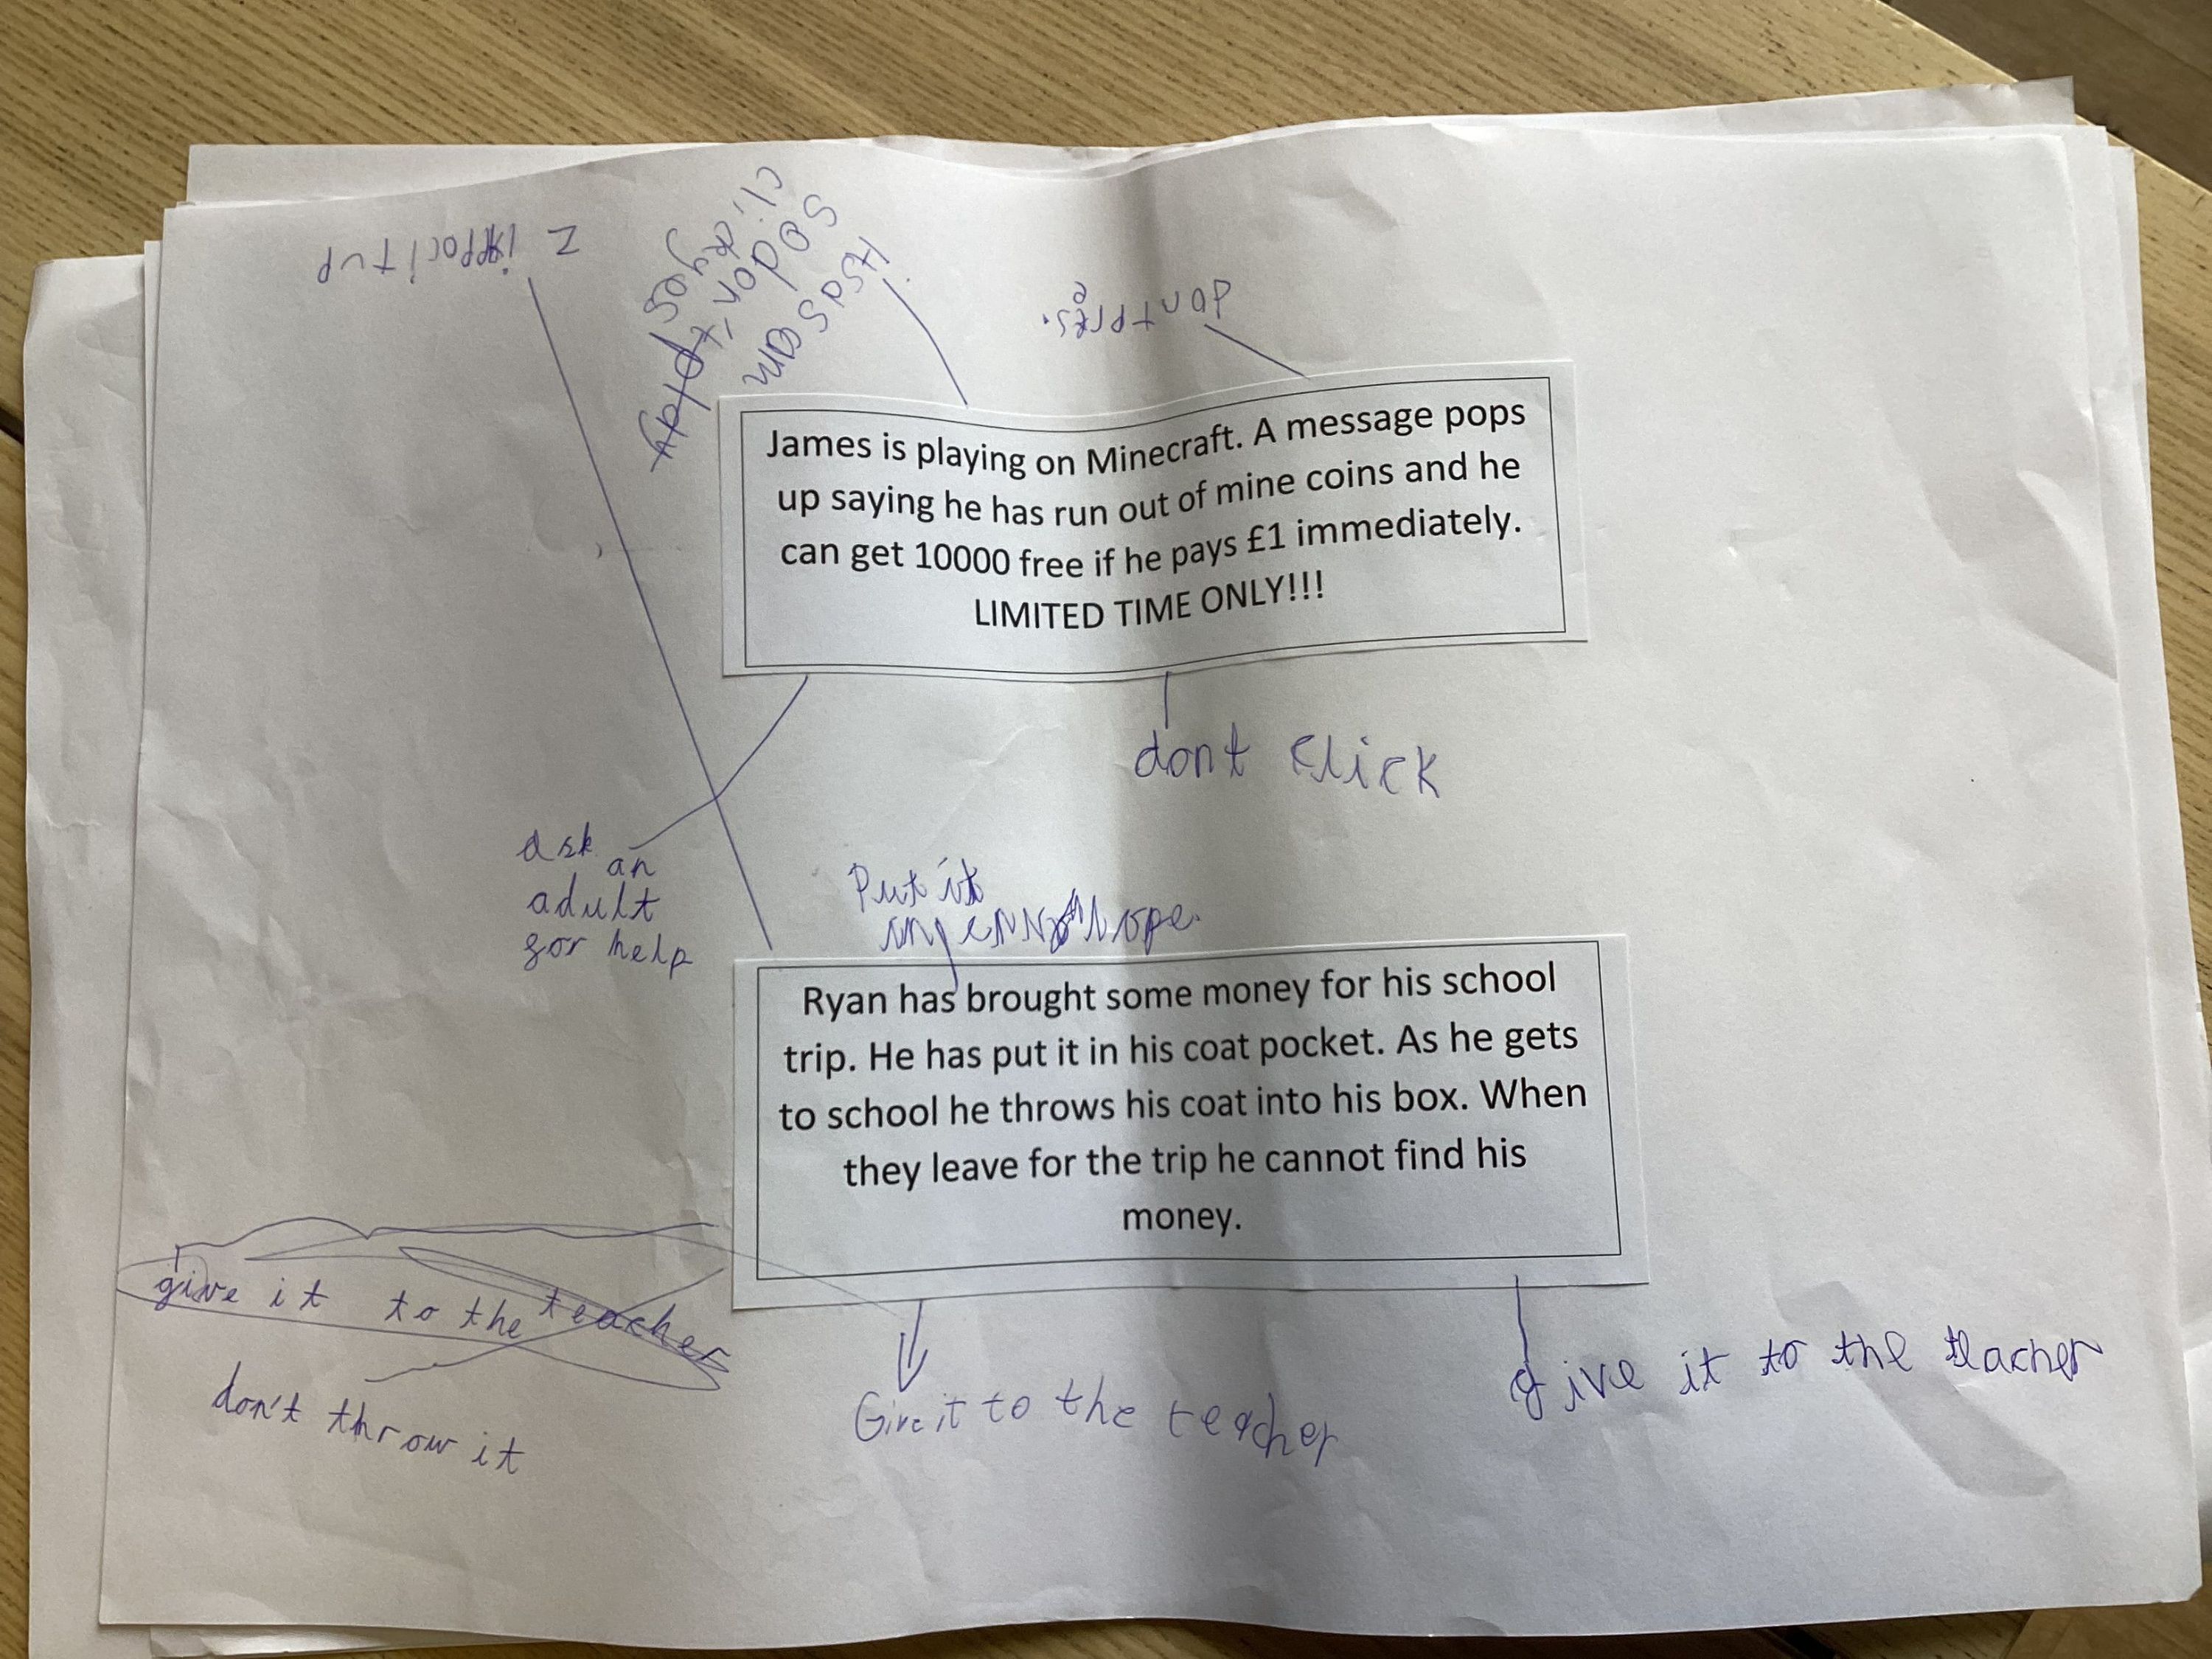 dont pres.
its a scam
so don't
click
James is playing on Minecraft. A message pops
up saying he has run out of mine coins and he
can get 10000 free if he pays £1 immediately.
LIMITED TIME ONLY!!!
dont click
ask an
adult
for help
Put it
Ryan has brought some money for his school
trip. He has put it in his coat pocket. As he gets
to school he throws his coat into his box. When
they leave for the trip he cannot find his
money.
give it to the teacher
don't throw it
Give it to the teacher
give it to the teacher